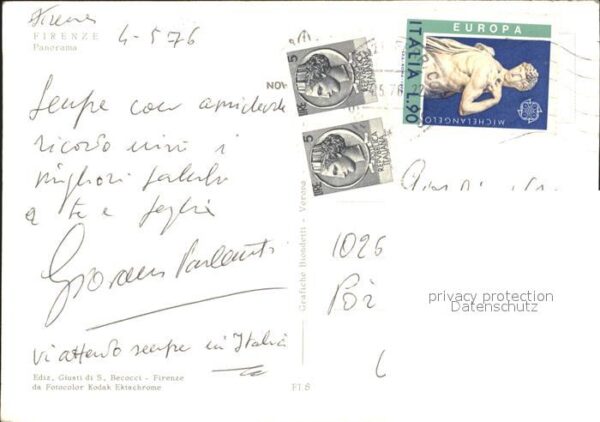 Firenze
FIRENZE
Panorama
4-5-76
Sempre con amichevole
ricordo invio i
migliori saluti
a te e
Giovanni
vi attendo sempre in Italia
Ediz. Giusti di S. Becocci - Firenze
da Fotocolor Kodak Ektachrome
FI 8
Grafiche Biondetti - Verona
EUROPA
ITALIA L.90
MICHELANGELO
LIRE 5
REPUBBLICA ITALIANA
LIRE 5
REPUBBLICA ITALIANA
1026
privacy protection
Datenschutz